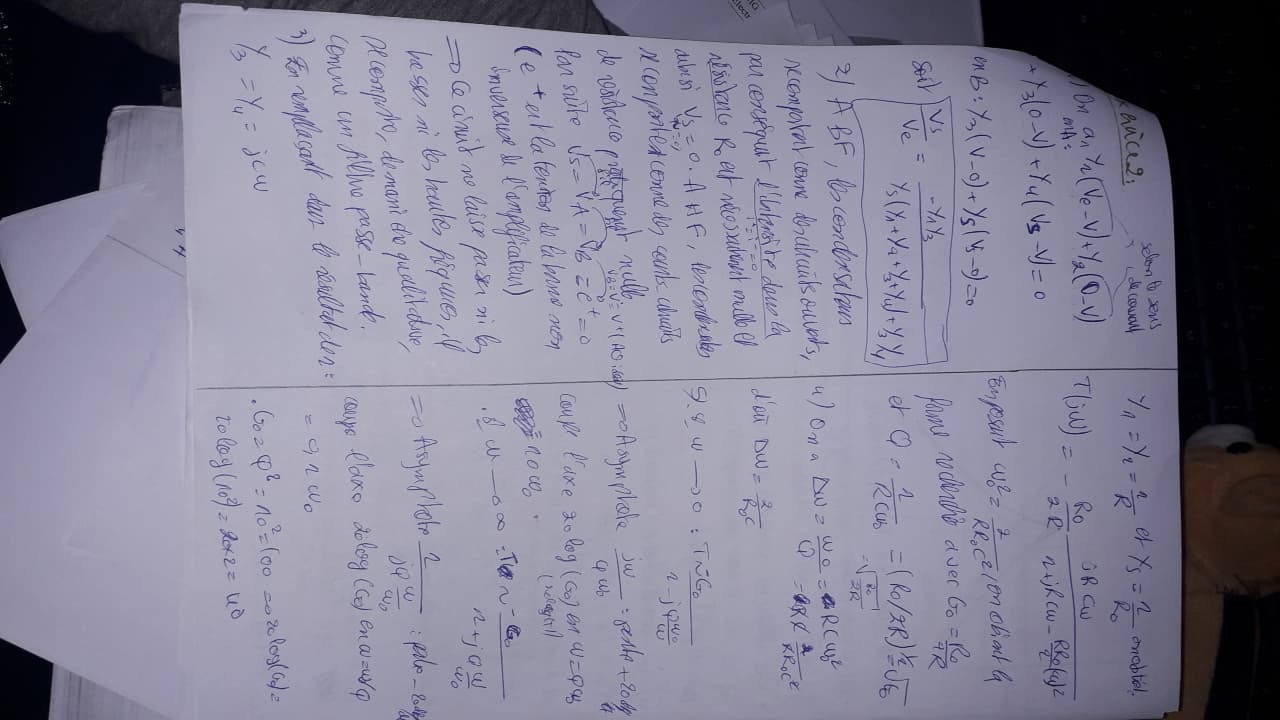 Exercice 2:
selon le sens
du courant
1) On a, Y₂(Ve-V)+Y₂(0-V)
+ Y₃(0-V) + Y₄(Vs-V) = 0
en B: Y₃(V-0)+Y₅(Vs-0)=0
soit Vs/Ve = -Y₁Y₃ / Y₅(Y₁+Y₂+Y₃+Y₄)+Y₃Y₄
2) A BF, les condensateurs
se comportent comme des circuits ouverts,
par conséquent l'intensité dans la
résistance R₀ est nécessairement nulle et
ainsi Vs = 0. A HF, les condensateurs
se comportent comme des courts circuits
de résistance pratiquement nulle
Par suite Vs = VA = VB = e⁺ = 0
(e⁺ est la tension de la borne non
inverseuse de l'amplificateur)
⇒ Ce circuit ne laisse passer ni les
basses ni les hautes fréquences, il
se comporte, de manière qualitative,
comme un filtre passe-bande.
3) En remplaçant dans le résultat de 1:
Y₃ = Y₄ = jcω
Y₁ = Y₂ = 1/R et Y₅ = 1/R₀ on obtient
T(jω) = - R₀/2R jRCω / 1+jRCω-RR₀/2(Cω)²
En posant ω₀² = 2/RR₀C², on obtient la
forme demandée avec G₀ = R₀/2R
et Q = 1/RCω₀ = (R₀/2R)^½ = √G₀
4) On a Δω = ω₀/Q = RCω₀² = RC 2/RR₀C²
d'où Δω = 2/R₀C
5). si ω → 0 : T ≈ -G₀ / 1-jQω₀/ω
⇒ Asymptote jω/Qω₀ : pente +20dB
coupe l'axe 20log(G₀) en ω = Qω₀
= 10ω₀.
. si ω → ∞ : T ≈ -G₀ / 1+jQω/ω₀
⇒ Asymptote 1/jQω/ω₀ : pente -20dB
coupe l'axe 20log(G₀) en ω=ω₀/Q
= 0,1ω₀
. G₀ = Q² = 10² = 100 ⇒ 20log(G₀) =
20log(10²) = 20×2 = 40